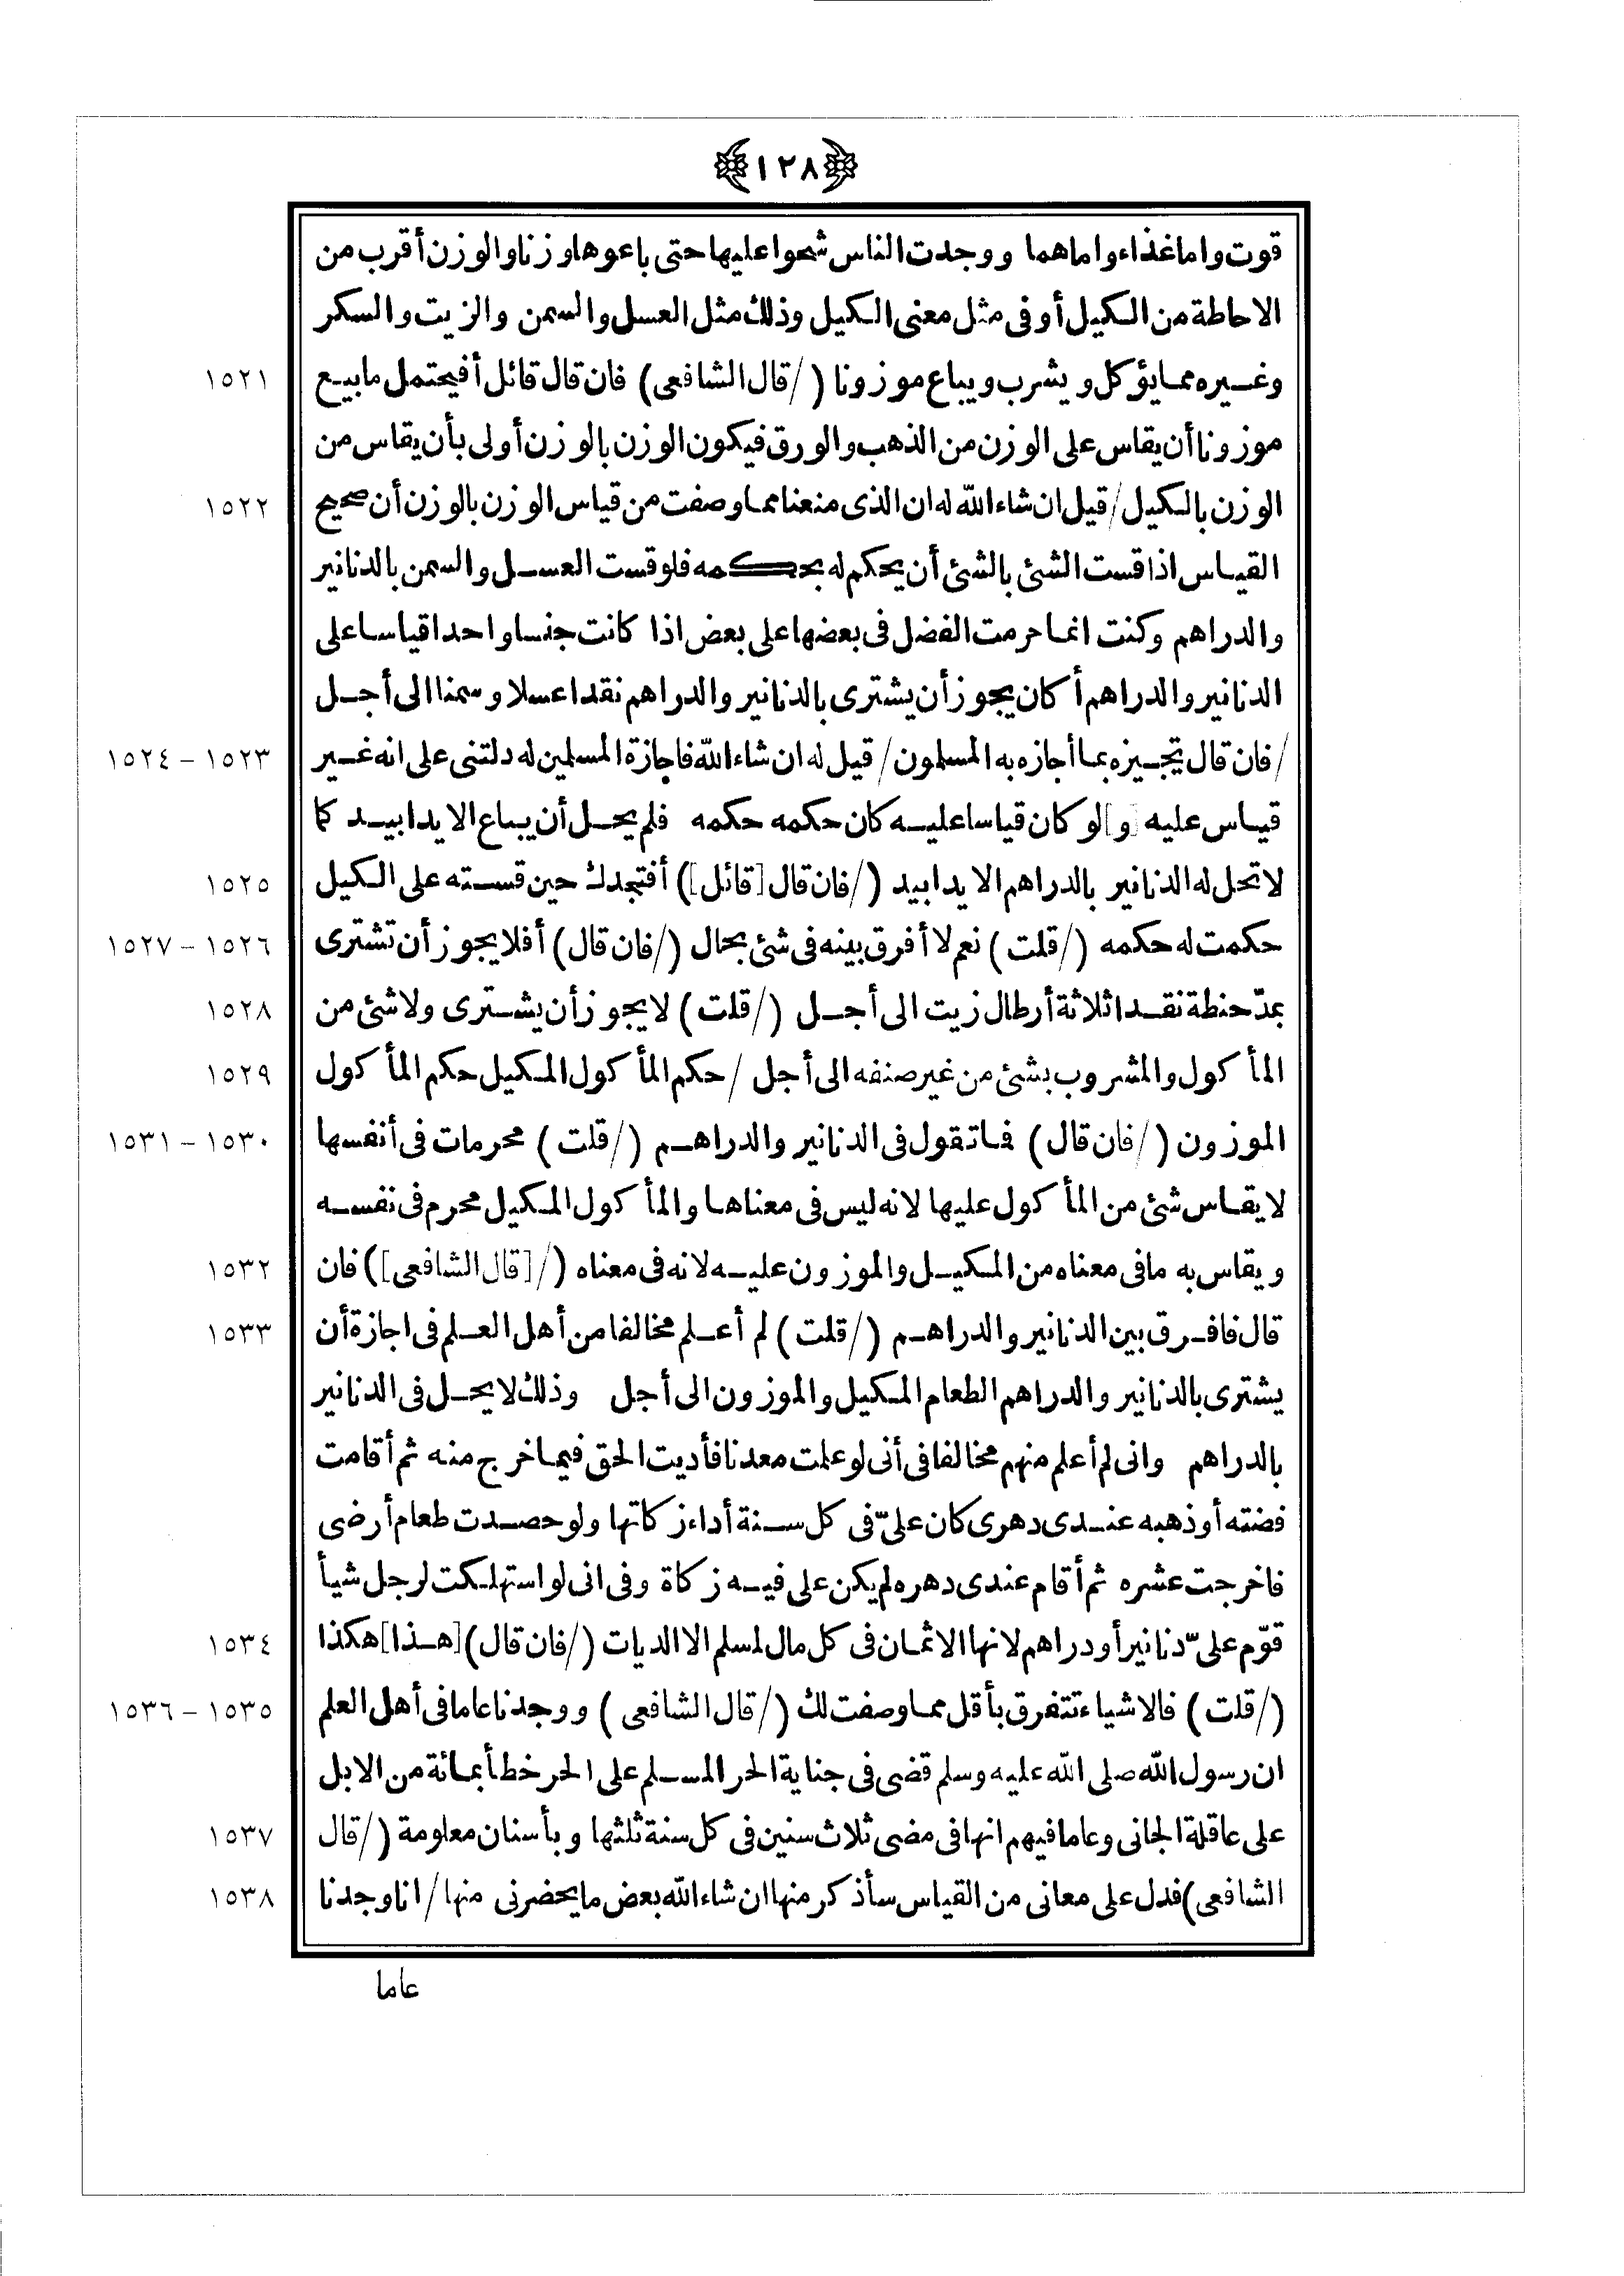 ١٢٨
قوت واما غذاء واما هما ووجدت الناس شحوا عليها حتى باعوها وزنا والوزن أقرب من
الاحاطة من الكيل أو فى مثل معنى الكيل وذلك مثل العسل والسمن والزيت والسكر
وغيره مما يؤكل ويشرب ويباع موزونا (/قال الشافعى) فان قال قائل أفيحتمل ما بيع ١٥٢١
موزونا أن يقاس على الوزن من الذهب والورق فيكون الوزن بالوزن أولى بأن يقاس من
الوزن بالكيل/قيل ان شاء الله له ان الذى منعنا مما وصفت من قياس الوزن بالوزن أن صحيح ١٥٢٢
القياس اذا قست الشئ بالشئ أن يحكم له بحكمه فلو قست العسل والسمن بالدنانير
والدراهم وكنت انما حرمت الفضل فى بعضها على بعض اذا كانت جنسا واحدا قياسا على
الدنانير والدراهم أ كان يجوز أن يشترى بالدنانير والدراهم نقدا عسلا وسمنا الى أجل
/فان قال تجيزه بما أجازه به المسلمون/قيل له ان شاء الله فاجازة المسلمين له دلتنى على انه غير ١٥٢٣ – ١٥٢٤
قياس عليه [و]لو كان قياسا عليه كان حكمه حكمه فلم يحل أن يباع الا يدا بيد كما
لا تحل له الدنانير بالدراهم الا يدا بيد (/فان قال [قائل]) أفتجدك حين قسته على الكيل ١٥٢٥
حكمت له حكمه (/قلت) نعم لا أفرق بينه فى شئ بحال (/فان قال) أفلا يجوز أن تشترى ١٥٢٦ – ١٥٢٧
بمدّ حنطة نقدا ثلاثة أرطال زيت الى أجل (/قلت) لا يجوز أن يشترى ولا شئ من ١٥٢٨
المأ كول والمشروب بشئ من غير صنفه الى أجل /حكم المأ كول المكيل حكم المأ كول ١٥٢٩
الموزون (/فان قال) فما تقول فى الدنانير والدراهم (/قلت) محرمات فى أنفسها ١٥٣٠ – ١٥٣١
لا يقاس شئ من المأ كول عليها لانه ليس فى معناها والمأ كول المكيل محرم فى نفسه
ويقاس به ما فى معناه من المكيل والموزون عليه لانه فى معناه (/[قال الشافعى]) فان ١٥٣٢
قال فافرق بين الدنانير والدراهم (/قلت) لم أعلم مخالفا من أهل العلم فى اجازة أن ١٥٣٣
يشترى بالدنانير والدراهم الطعام المكيل والموزون الى أجل وذلك لا يحل فى الدنانير
بالدراهم وانى لم أعلم منهم مخالفا فى أنى لو علمت معدنا فأديت الحق فيما خرج منه ثم أقامت
فضته أو ذهبه عندى دهرى كان علىّ فى كل سنة أداء زكاتها ولو حصدت طعام أرضى
فاخرجت عشره ثم أقام عندى دهره لم يكن على فيه زكاة وفى انى لو استهلكت لرجل شيأ
قوّم علىّ دنانير أو دراهم لانها الاثمان فى كل مال لمسلم الا الديات (/فان قال) [هذا] هكذا ١٥٣٤
(/قلت) فالاشياء تتفرق بأقل مما وصفت لك (/قال الشافعى) ووجدنا عاما فى أهل العلم ١٥٣٥ – ١٥٣٦
ان رسول الله صلى الله عليه وسلم قضى فى جناية الحر المسلم على الحر خطأ بمائة من الابل
على عاقلة الجانى وعاما فيهم انها فى مضى ثلاث سنين فى كل سنة ثلثها وبأسنان معلومة (/قال ١٥٣٧
الشافعى) فدل على معانى من القياس سأذكر منها ان شاء الله بعض ما يحضرنى منها/انا وجدنا ١٥٣٨
عاما